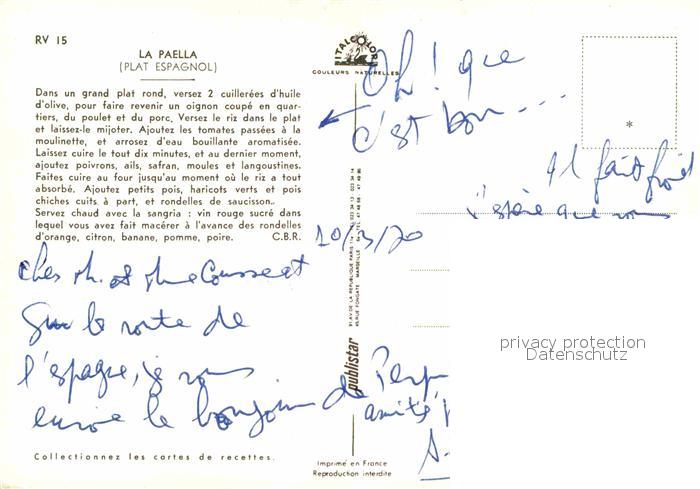 RV 15
LA PAELLA
(PLAT ESPAGNOL)
Dans un grand plat rond, versez 2 cuillerées d'huile
d'olive, pour faire revenir un oignon coupé en quar-
tiers, du poulet et du porc. Versez le riz dans le plat
et laissez-le mijoter. Ajoutez les tomates passées à la
moulinette, et arrosez d'eau bouillante aromatisée.
Laissez cuire le tout dix minutes, et au dernier moment,
ajoutez poivrons, ails, safran, moules et langoustines.
Faites cuire au four jusqu'au moment où le riz a tout
absorbé. Ajoutez petits pois, haricots verts et pois
chiches cuits à part, et rondelles de saucisson..
Servez chaud avec la sangria : vin rouge sucré dans
lequel vous avez fait macérer à l'avance des rondelles
d'orange, citron, banane, pomme, poire. C.B.R.
ITALCOLOR
COULEURS NATURELLES
Oh ! que
c'est bon - - -
*
Il fait froid
j'espère que vous
10/3/70
Chers M. et Mme
Sur la route de
l'espagne, je vous
envoie le bonjour de Perp
amitié
A-
publistar
Collectionnez les cartes de recettes.
Imprimé en France
Reproduction interdite
privacy protection
Datenschutz